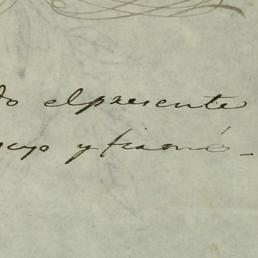 do el presente
uyo y firmó.